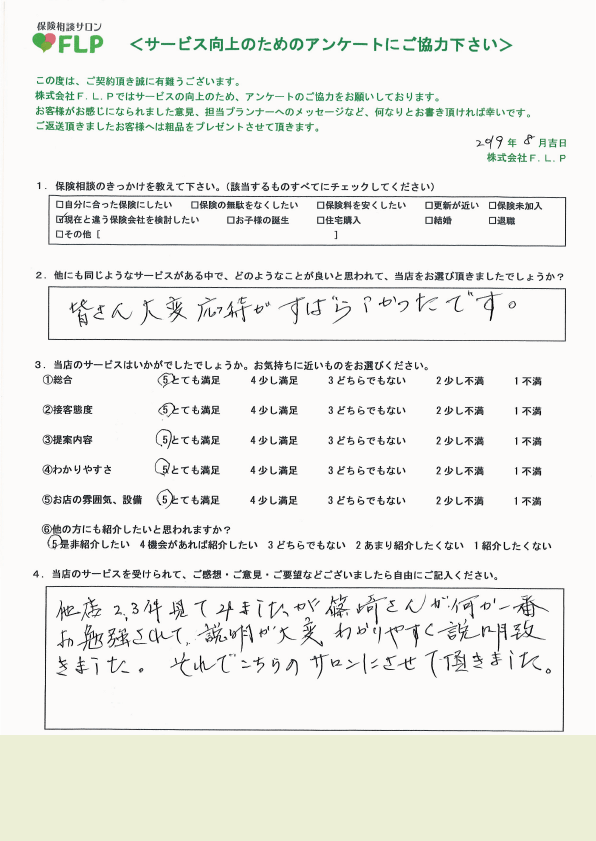 保険相談サロン
FLP
＜サービス向上のためのアンケートにご協力下さい＞
この度は、ご契約頂き誠に有難うございます。
株式会社Ｆ.Ｌ.Ｐではサービスの向上のため、アンケートのご協力をお願いしております。
お客様がお感じになられました意見、担当プランナーへのメッセージなど、何なりとお書き頂ければ幸いです。
ご返送頂きましたお客様へは粗品をプレゼントさせて頂きます。
2019 年 8 月吉日
株式会社Ｆ.Ｌ.Ｐ
１．保険相談のきっかけを教えて下さい。（該当するものすべてにチェックしてください）
□自分に合った保険にしたい □保険の無駄をなくしたい □保険料を安くしたい □更新が近い □保険未加入
☑現在と違う保険会社を検討したい □お子様の誕生 □住宅購入 □結婚 □退職
□その他［ ］
２．他にも同じようなサービスがある中で、どのようなことが良いと思われて、当店をお選び頂きましたでしょうか？
皆さん大変応待がすばらしかったです。
３．当店のサービスはいかがでしたでしょうか。お気持ちに近いものをお選びください。
①総合 5とても満足 4少し満足 3どちらでもない 2少し不満 1不満
②接客態度 5とても満足 4少し満足 3どちらでもない 2少し不満 1不満
③提案内容 5とても満足 4少し満足 3どちらでもない 2少し不満 1不満
④わかりやすさ 5とても満足 4少し満足 3どちらでもない 2少し不満 1不満
⑤お店の雰囲気、設備 5とても満足 4少し満足 3どちらでもない 2少し不満 1不満
⑥他の方にも紹介したいと思われますか？
5是非紹介したい 4機会があれば紹介したい 3どちらでもない 2あまり紹介したくない 1紹介したくない
４．当店のサービスを受けられて、ご感想・ご意見・ご要望などございましたら自由にご記入ください。
他店2,3件見てみましたが篠崎さんが何か一番
お勉強されて、説明が大変わかりやすく説明致
きました。それでこちらのサロンにさせて頂きました。